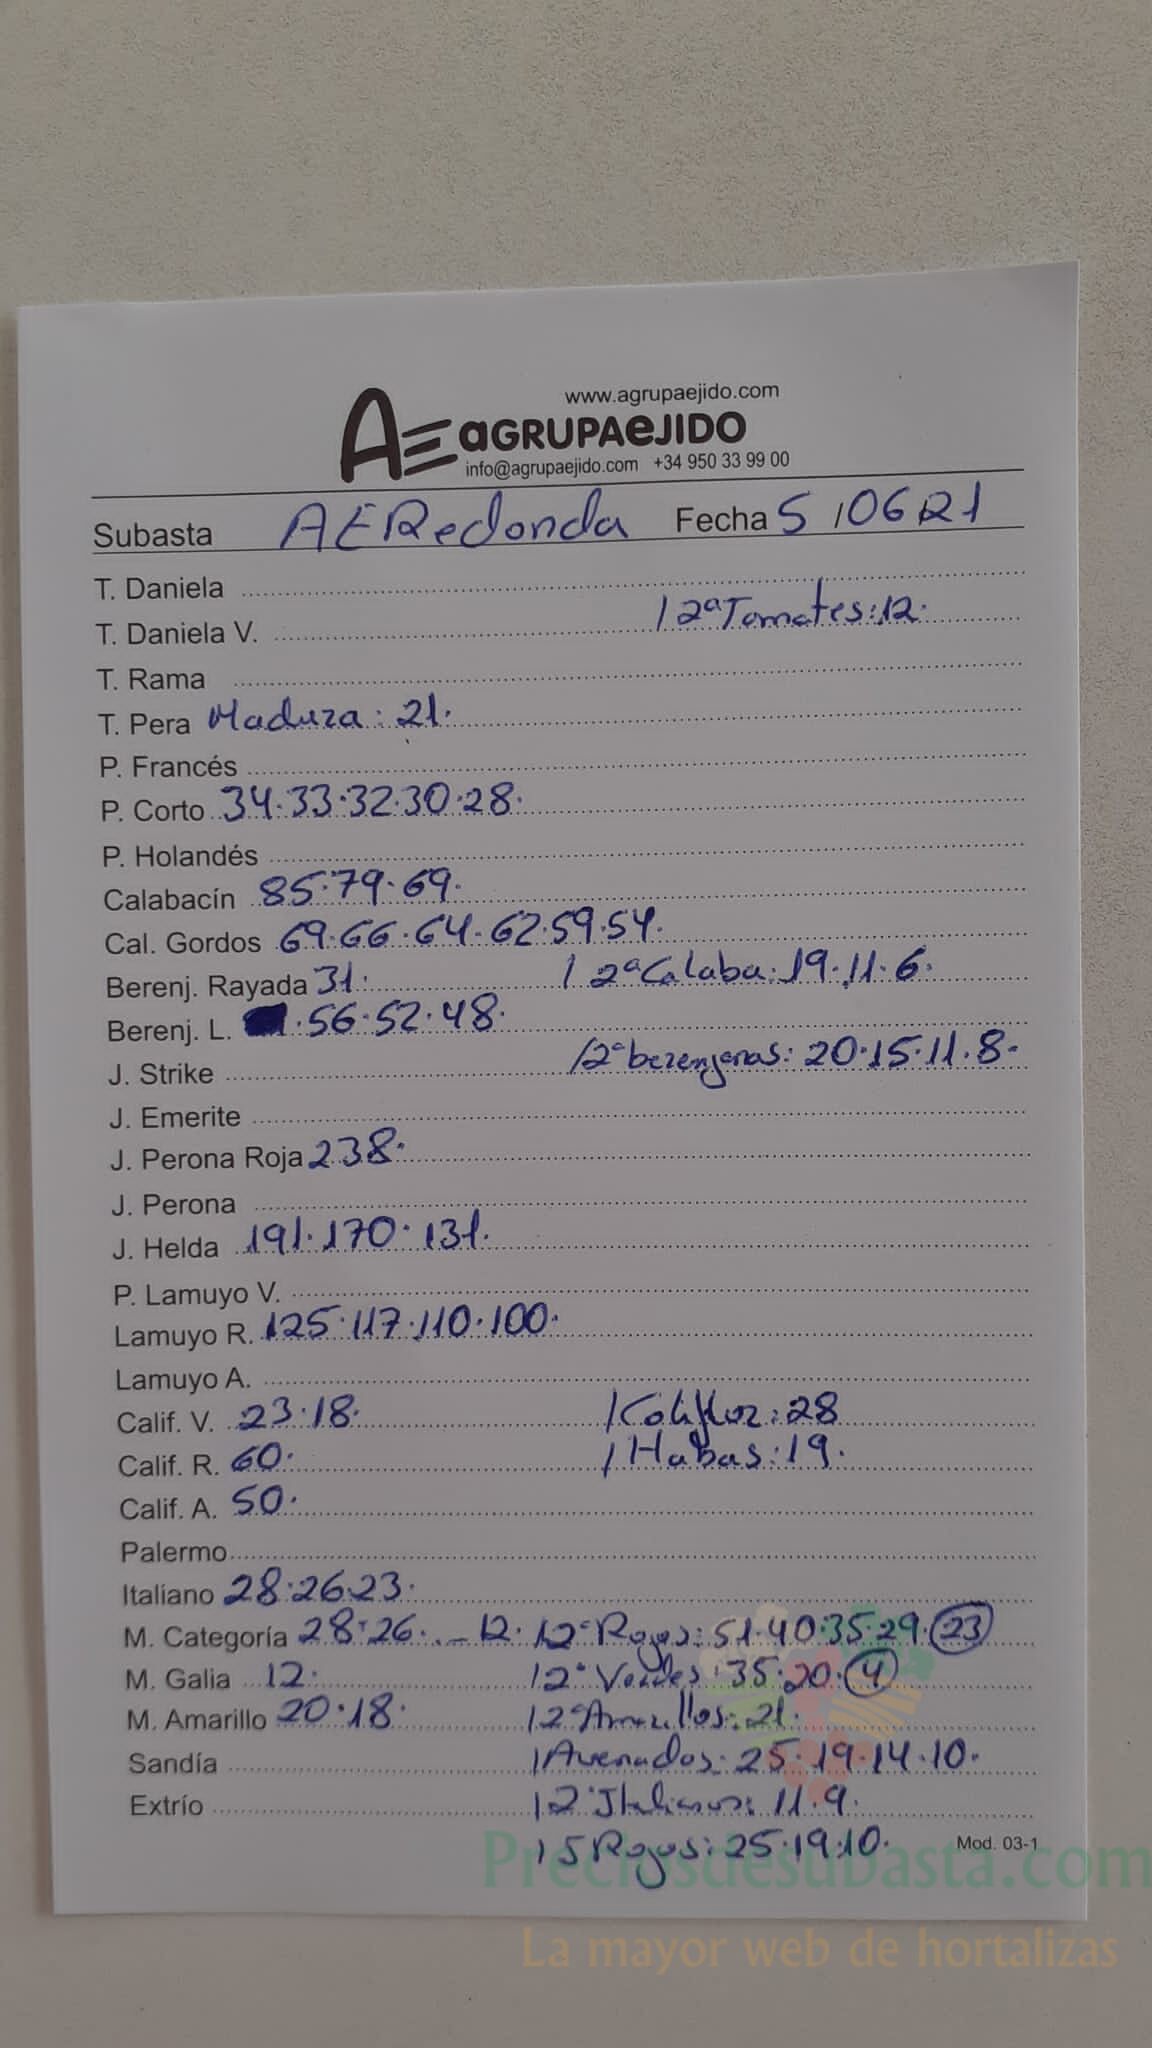 www.agrupaejido.com
AE aGRUPAeJIDO
info@agrupaejido.com +34 950 33 99 00
Subasta AERedonda Fecha 5/06R1
T. Daniela
T. Daniela V. /2ªTomates:12.
T. Rama
T. Pera Madura: 21.
P. Francés
P. Corto 34.33.32.30.28.
P. Holandés
Calabacín 85.79.69.
Cal. Gordos 69.66.64.62.59.54.
Berenj. Rayada 31. /2ªCalaba:19.11.6.
Berenj. L. .56.52.48.
J. Strike /2ªberenjenas: 20.15.11.8.
J. Emerite
J. Perona Roja 238.
J. Perona
J. Helda 191.170.131.
P. Lamuyo V.
Lamuyo R. 125.117.110.100.
Lamuyo A.
Calif. V. 23.18. /Coliflor:28
Calif. R. 60. /Habas:19.
Calif. A. 50.
Palermo
Italiano 28.26.23.
M. Categoría 28.26..-12. /2ªRojos:51.40.35.29.23
M. Galia 12. /2ªVerdes:35.20.4
M. Amarillo 20.18. /2ªAmarillos:21.
Sandía /Avenados:25.19.14.10.
Extrío /2ªItalianos:11.9.
/5Rojos:25.19.10. Mod. 03-1
Preciosdesubasta.com
La mayor web de hortalizas